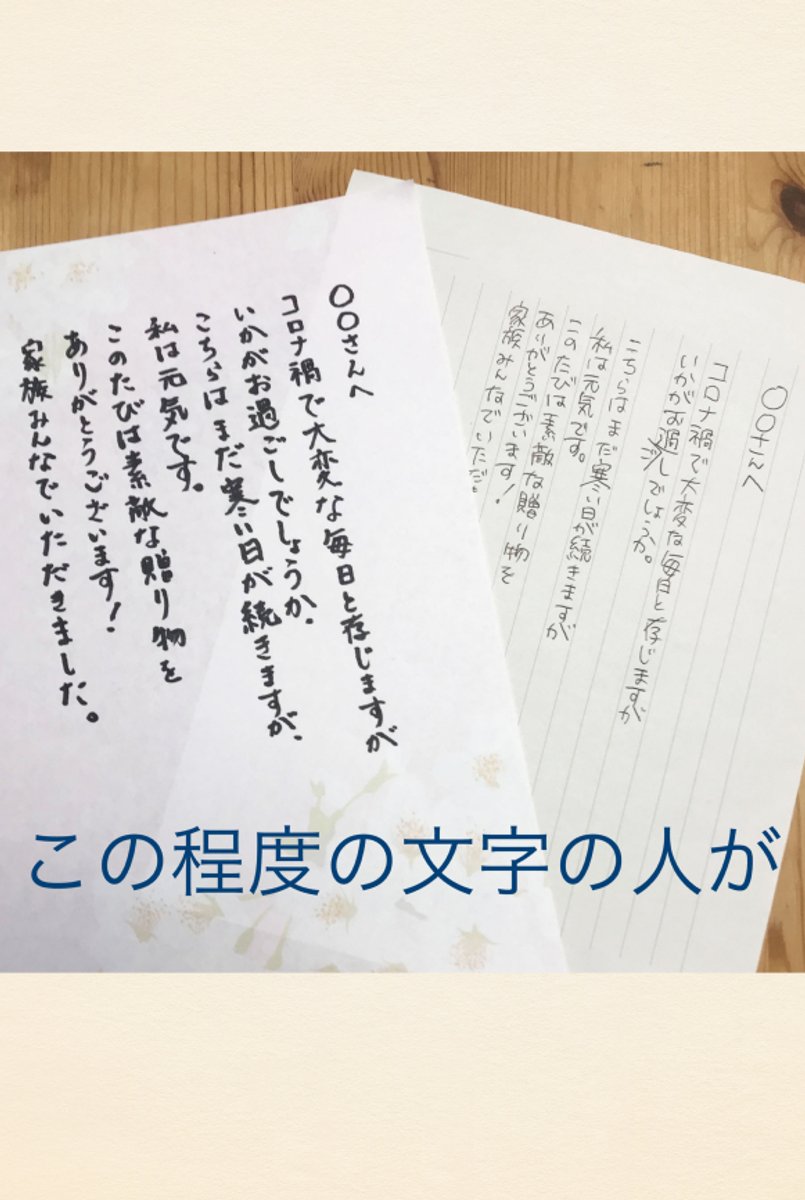 〇〇さんへ
コロナ禍で大変な毎日と存じますが
いかがお過ごしでしょうか。
こちらはまだ寒い日が続きますが、
私は元気です。
このたびは素敵な贈り物を
ありがとうございます！
家族みんなでいただきました。
〇〇さんへ
コロナ禍で大変な毎日と存じますが
いかがお過ごしでしょうか。
こちらはまだ寒い日が続きますが
私は元気です。
このたびは素敵な贈り物を
ありがとうございます！
家族みんなでいただ
この程度の文字の人が